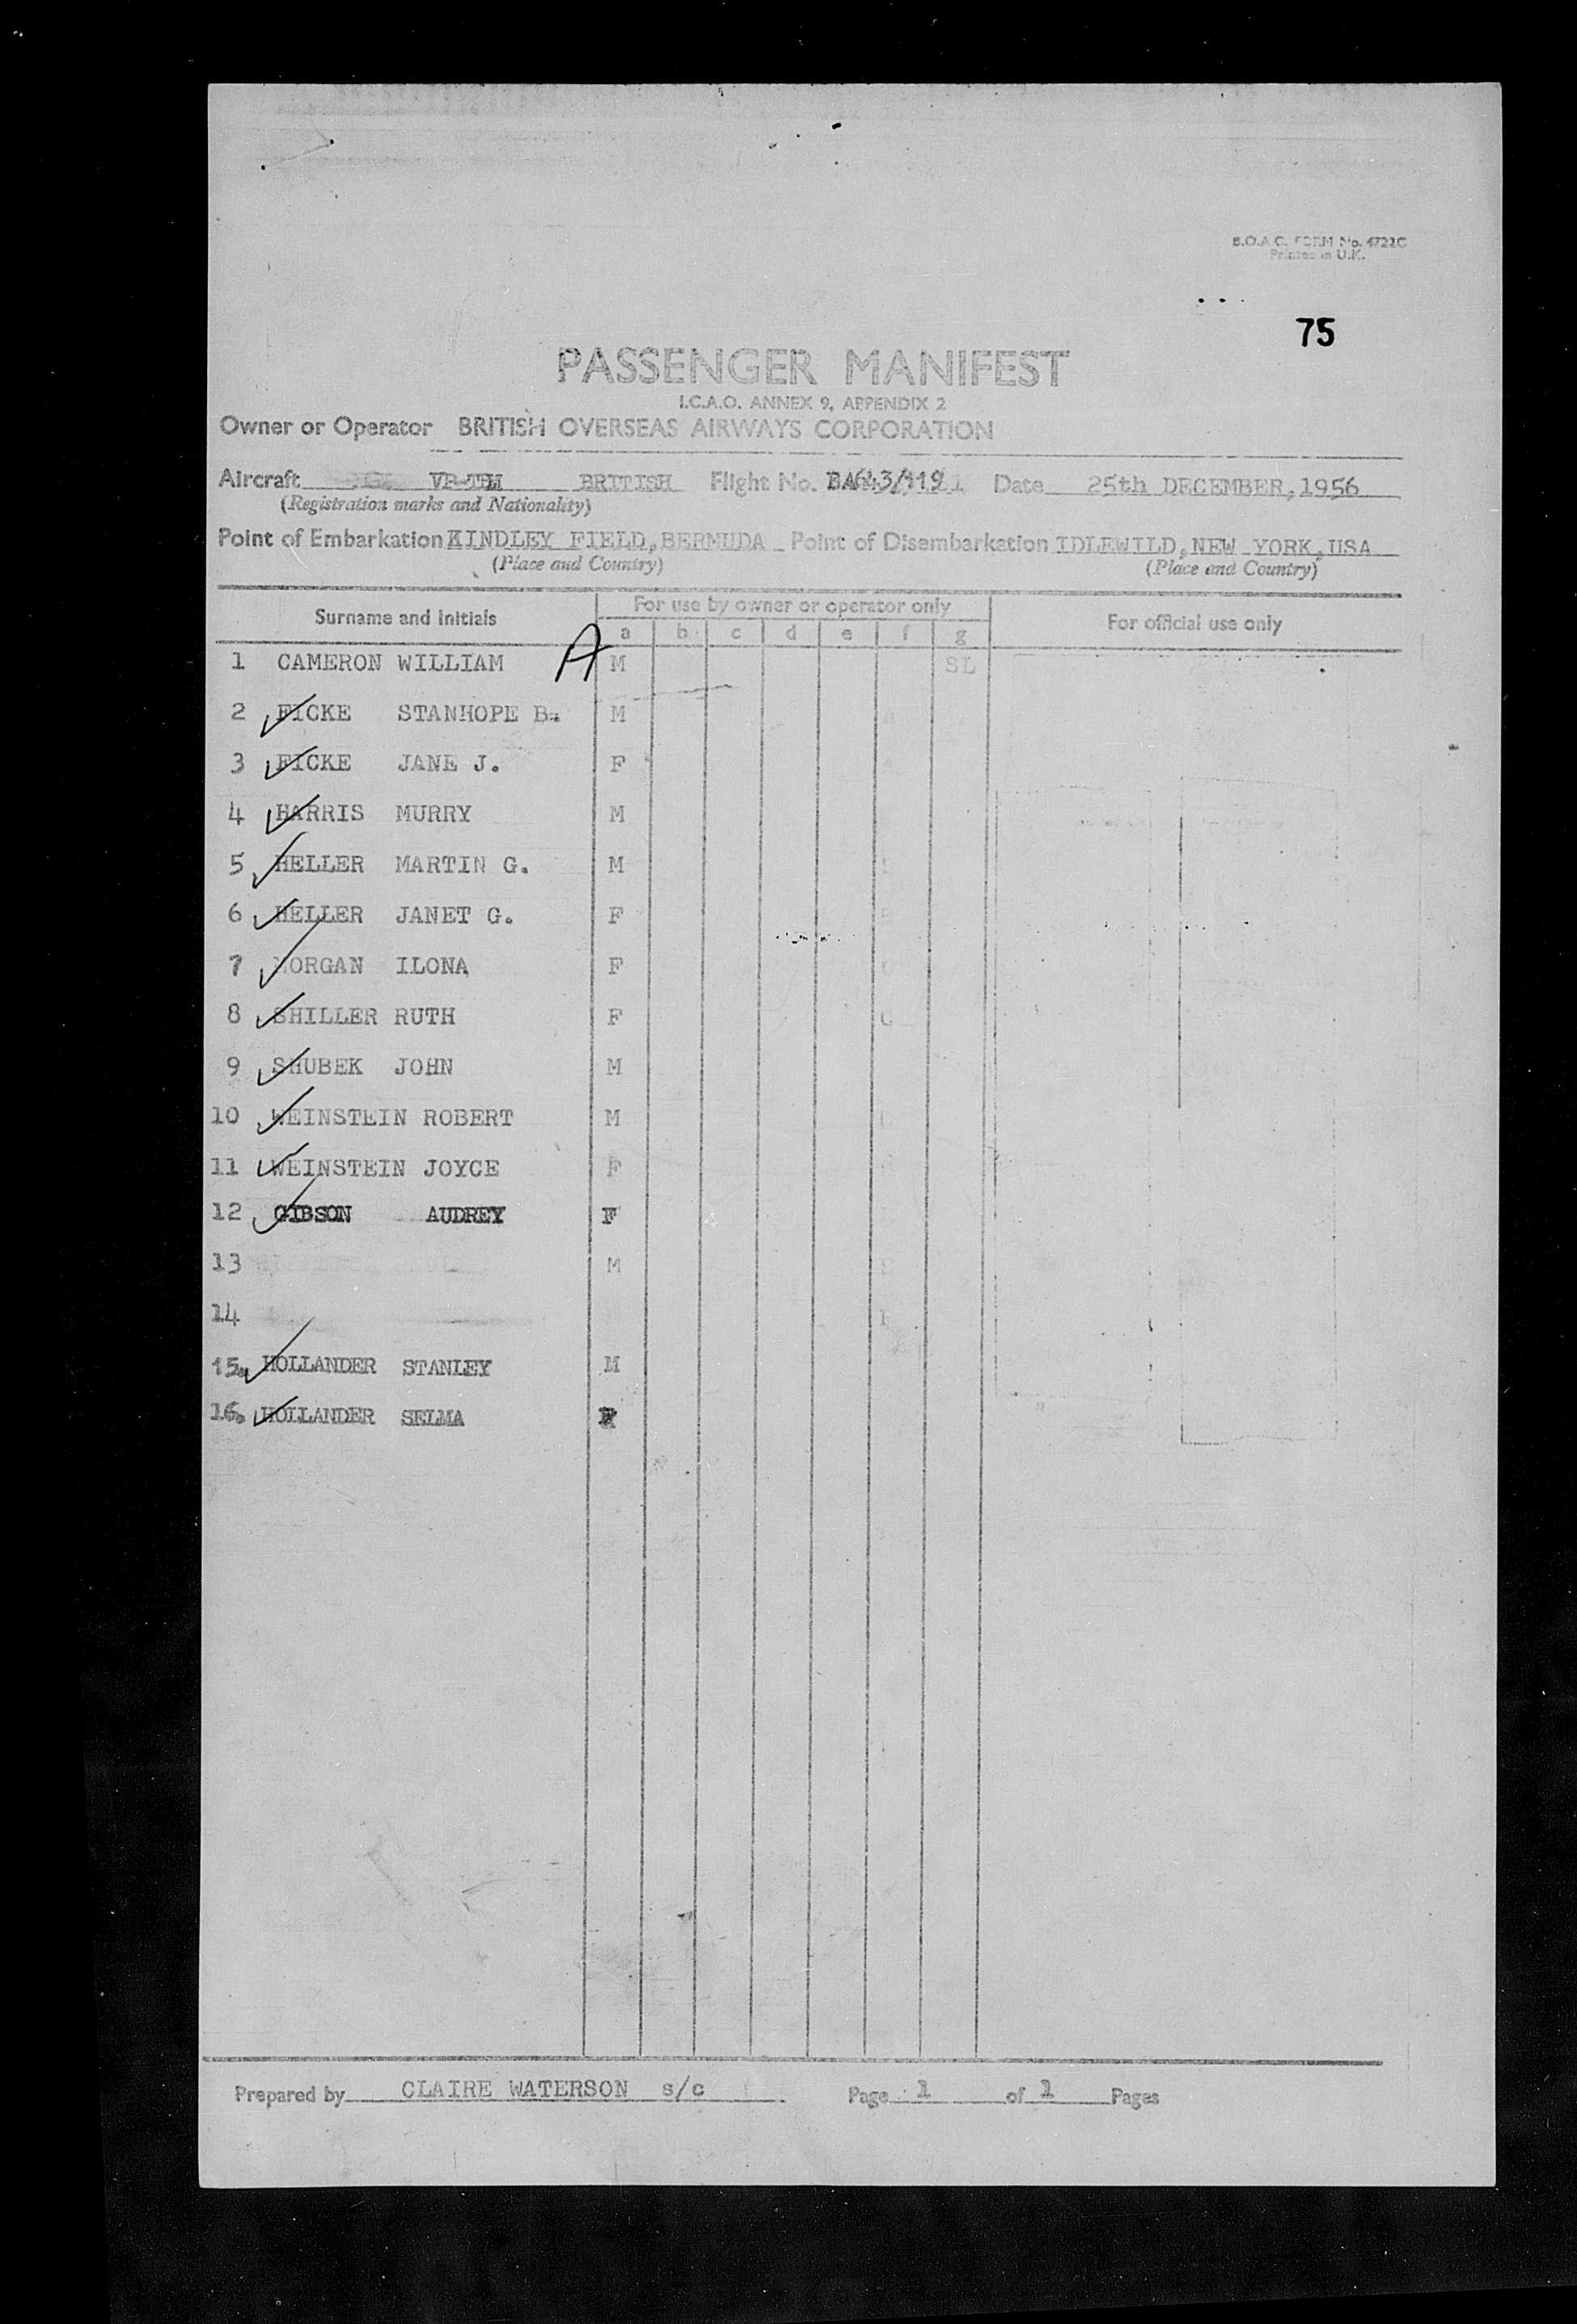 B.O.A.C. FORM No. 4722C
Printed in U.K.
75
PASSENGER MANIFEST
I.C.A.O. ANNEX 9, APPENDIX 2
Owner or Operator BRITISH OVERSEAS AIRWAYS CORPORATION
Aircraft BRITISH Flight No. BA643/119 Date 25th DECEMBER, 1956
(Registration marks and Nationality)
Point of Embarkation KINDLEY FIELD, BERMUDA Point of Disembarkation IDLEWILD, NEW YORK, USA
(Place and Country) (Place and Country)
Surname and initials For use by owner or operator only For official use only
a b c d e f g
1 CAMERON WILLIAM A M SL
2 FICKE STANHOPE B. M
3 FICKE JANE J. F
4 HARRIS MURRY M
5 HELLER MARTIN G. M
6 HELLER JANET G. F
7 MORGAN ILONA F
8 SHILLER RUTH F
9 SHUBEK JOHN M
10 WEINSTEIN ROBERT M
11 WEINSTEIN JOYCE F
12 GIBSON AUDREY F
13 M
14
15. HOLLANDER STANLEY M
16. HOLLANDER SELMA F
Prepared by CLAIRE WATERSON s/c Page 1 of 1 Pages